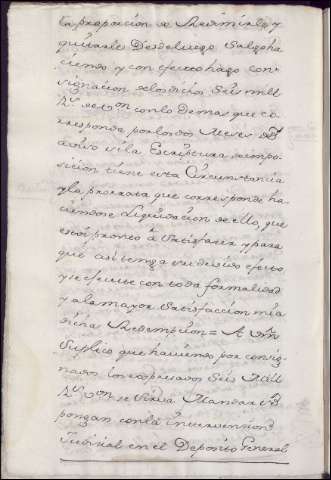 la proporcion de Redimirlo, y
quitarle Desde luego Salgo ha
ciendo, y con efecto hago con-
signacion de los dichos Seis mill
R.s de v.on con lo demas que co-
rresponda por los dos Meses de
aviso si la Escriptura de impo-
sicion tiene esta Circunstancia
y la prorrata que corresponde ha-
ciendose Liquidacion de ello, que
estoi pronto à Satisfacer, y para
que asi tenga su devido efecto
y se efectue con toda formalidad
y a la mayor Satisfaccion mia
dicha Redempcion = A Vm
Suplico que haviendo por consig-
nados los expresados Seis Mill
R.s v.on se sirva Mandar se
pongan con la intervencion
Judicial en el Deposito General